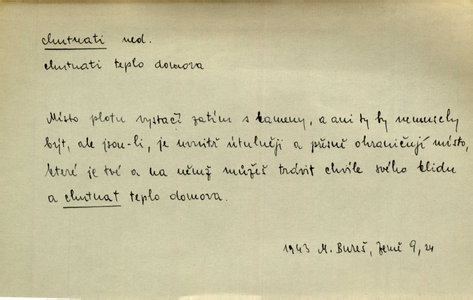 chutnati ned.
chutnati teplo domova
Místo plotu vystačí zatím s kameny, a ani ty by nemusely
být, ale jsou-li, je uvnitř útulněji a přesně ohraničují místo,
které je tvé a na němž můžeš trávit chvíle svého klidu
a chutnat teplo domova.
1943 M. Bureš, Země 9, 24